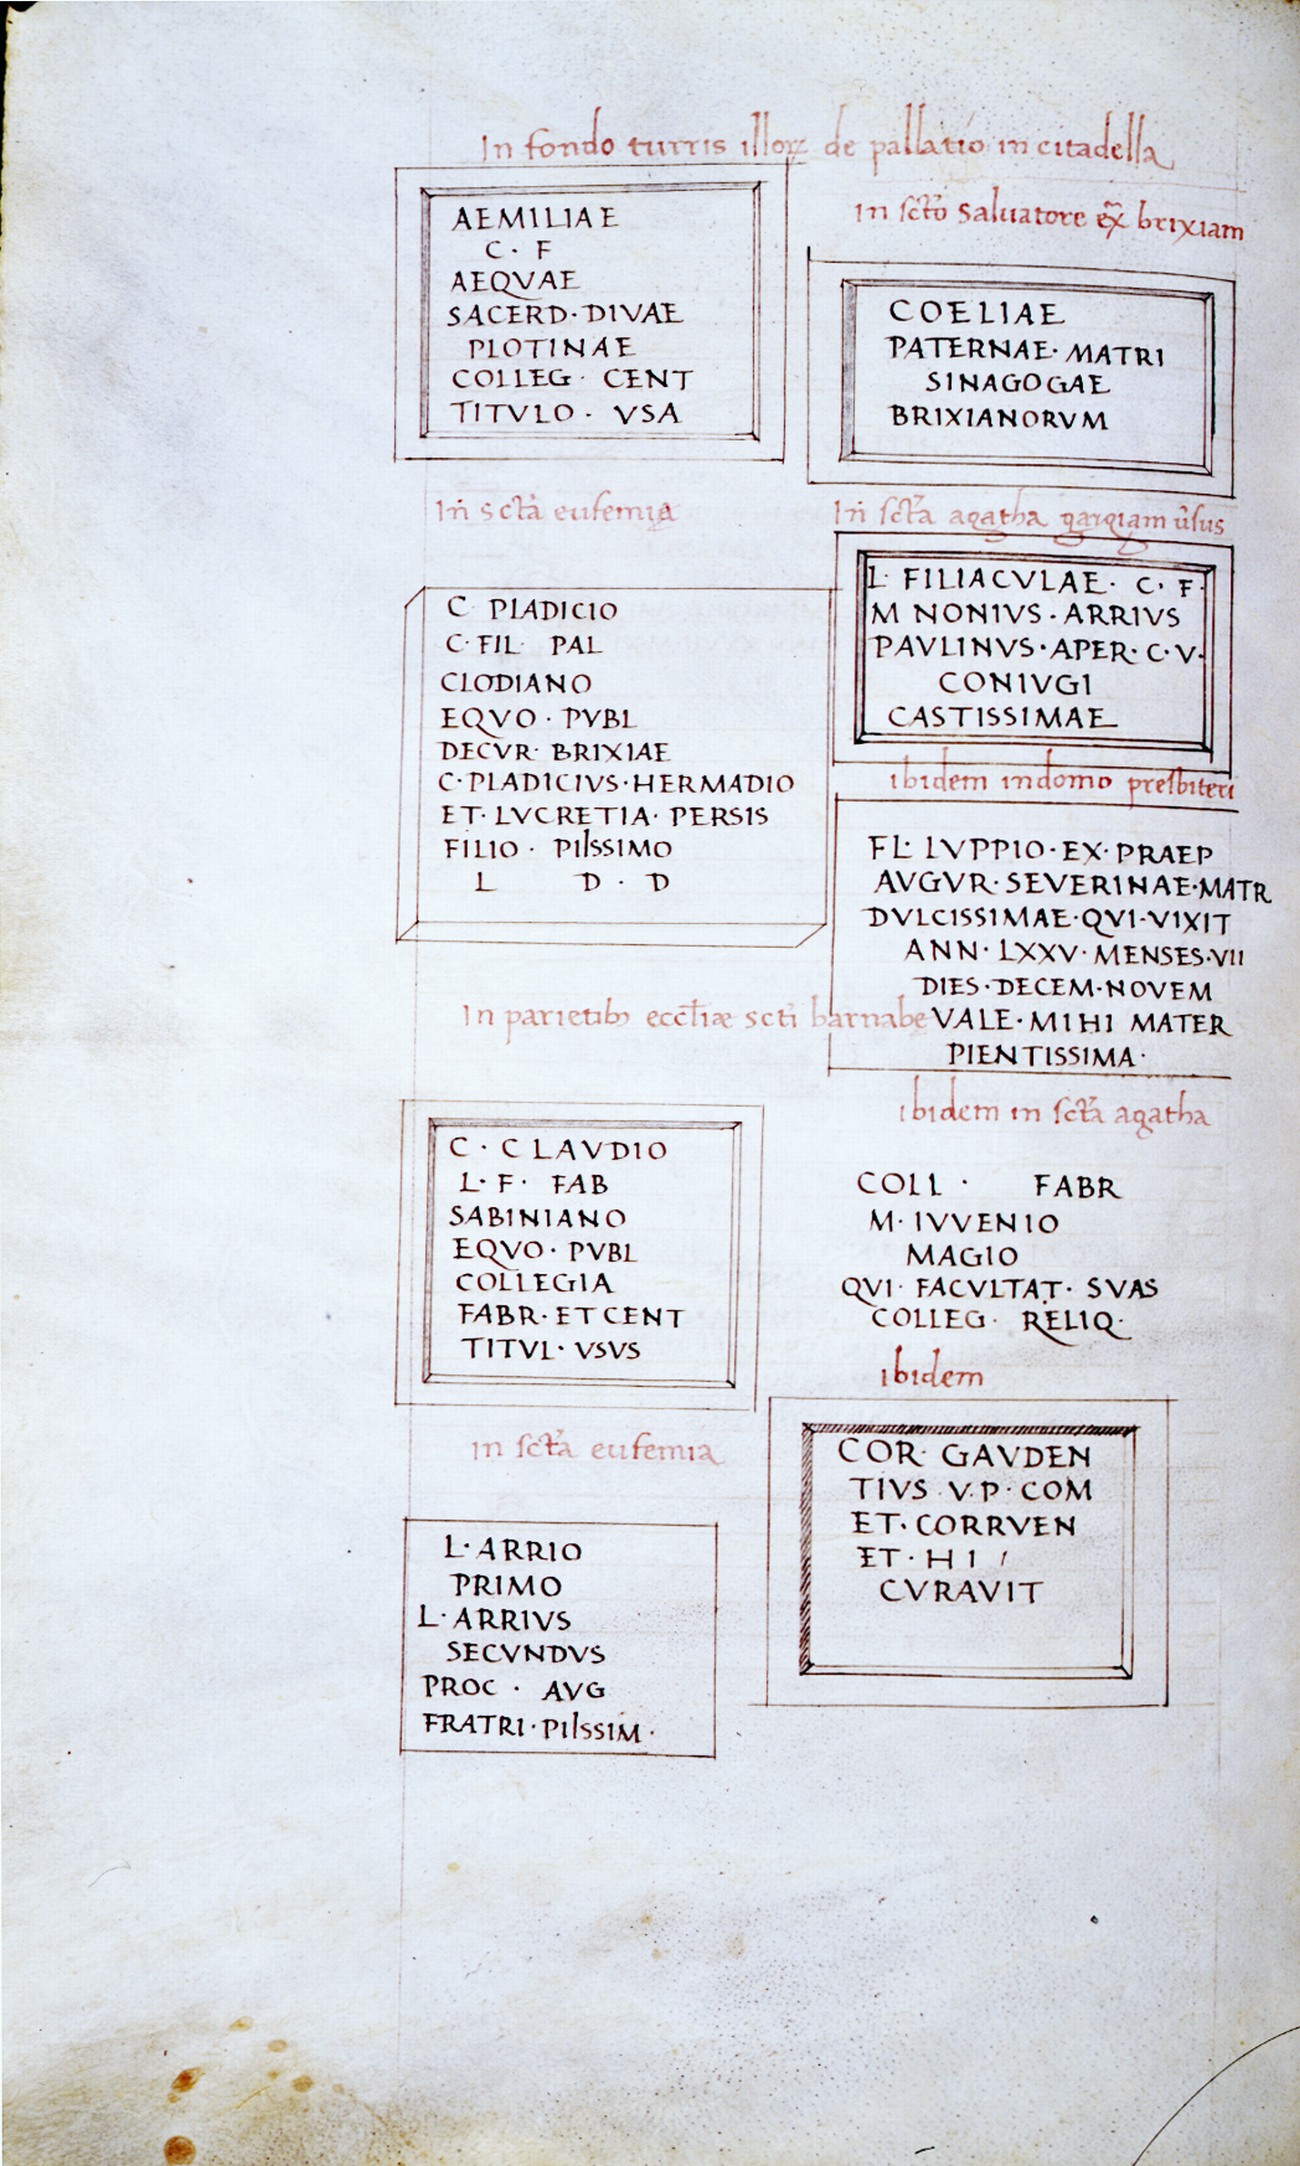 In fondo turris illoꝝ de pallatio in citadella
AEMILIAE
C · F
AEQVAE
SACERD · DIVAE
PLOTINAE
COLLEG · CENT
TITVLO · VSA
In scta eufemia
C PLADICIO
C · FIL · PAL
CLODIANO
EQVO · PVBL
DECVR · BRIXIAE
C · PLADICIVS · HERMADIO
ET · LVCRETIA · PERSIS
FILIO · PIISSIMO
L D · D
In parietib eccliæ scti barnabe
C · CLAVDIO
L · F · FAB
SABINIANO
EQVO · PVBL
COLLEGIA
FABR · ET CENT
TITVL · VSVS
in scta eufemia
L · ARRIO
PRIMO
L · ARRIVS
SECVNDVS
PROC · AVG
FRATRI · PIISSIM ·
in scto saluatore ex̃ brixiam
COELIAE
PATERNAE · MATRI
SINAGOGAE
BRIXIANORVM
In scta agatha gargiam ũsus
L · FILIACVLAE · C · F ·
M NONIVS · ARRIVS
PAVLINVS · APER · C · V ·
CONIVGI
CASTISSIMAE
ibidem in domo presbiteri
FL · LVPPIO · EX · PRAEP
AVGVR · SEVERINAE · MATR
DVLCISSIMAE · QVI · VIXIT
ANN · LXXV · MENSES · VII
DIES · DECEM · NOVEM
VALE · MIHI MATER
PIENTISSIMA ·
ibidem in scta agatha
COLL · FABR
M · IVVENIO
MAGIO
QVI · FACVLTAT · SVAS
COLLEG · RELIQ ·
ibidem
COR · GAVDEN
TIVS · V · P · COM
ET · CORRVEN
ET · H I
CVRAVIT